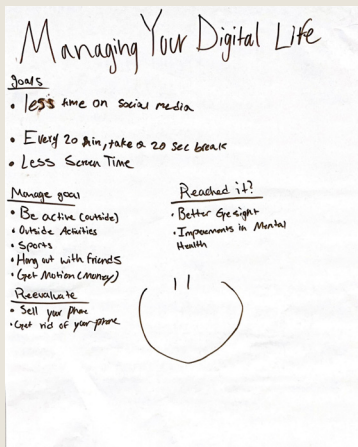 Managing Your Digital Life
goals
• less time on social media
• Every 20 min, take a 20 sec break
• Less Screen Time
Manage goal
• Be active (outside)
• Outside Activities
• Sports
• Hang out with friends
• Get Motion (Money)
Reevaluate
• Sell your phone
• Get rid of your phone
Reached it?
• Better Eyesight
• Improvements in Mental
Health